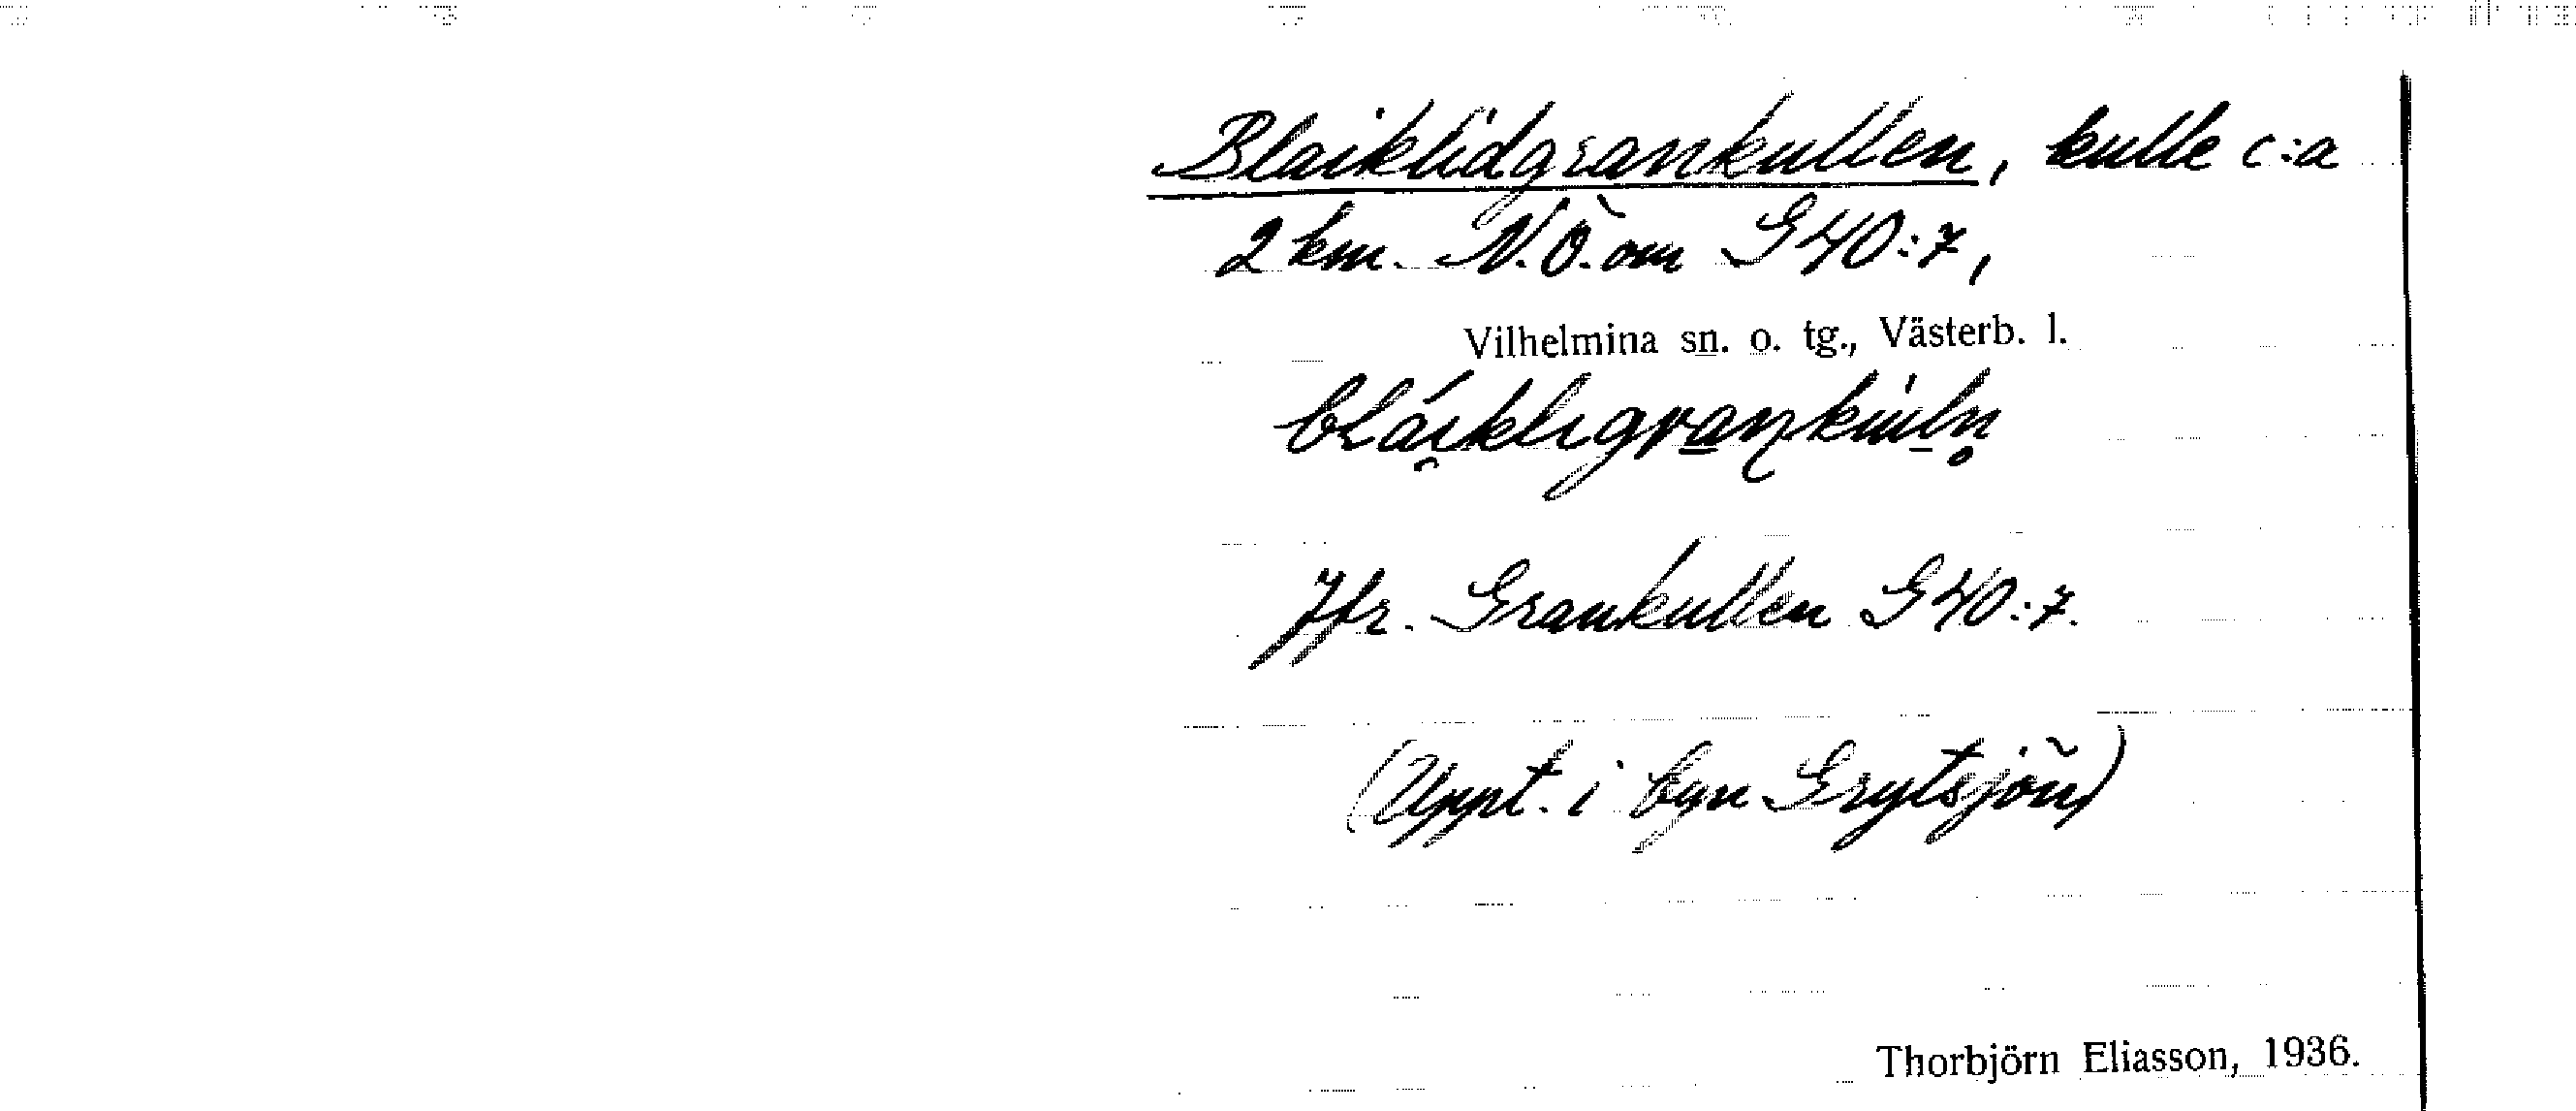 Blaiklidgrankullen, kulle c:a
2 km. N.Ö. om G40:7,
Vilhelmina sn. o. tg., Västerb. l.
Jfr. Grankullen G40:7.
(Uppt. i byn Grytsjön)
Thorbjörn Eliasson, 1936.